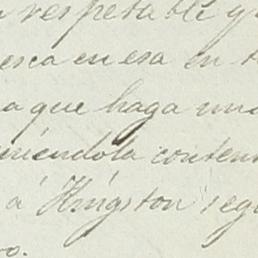 respetable y
esca en esa en
a que haga un
iéndola conten
a Kingston seg
o.